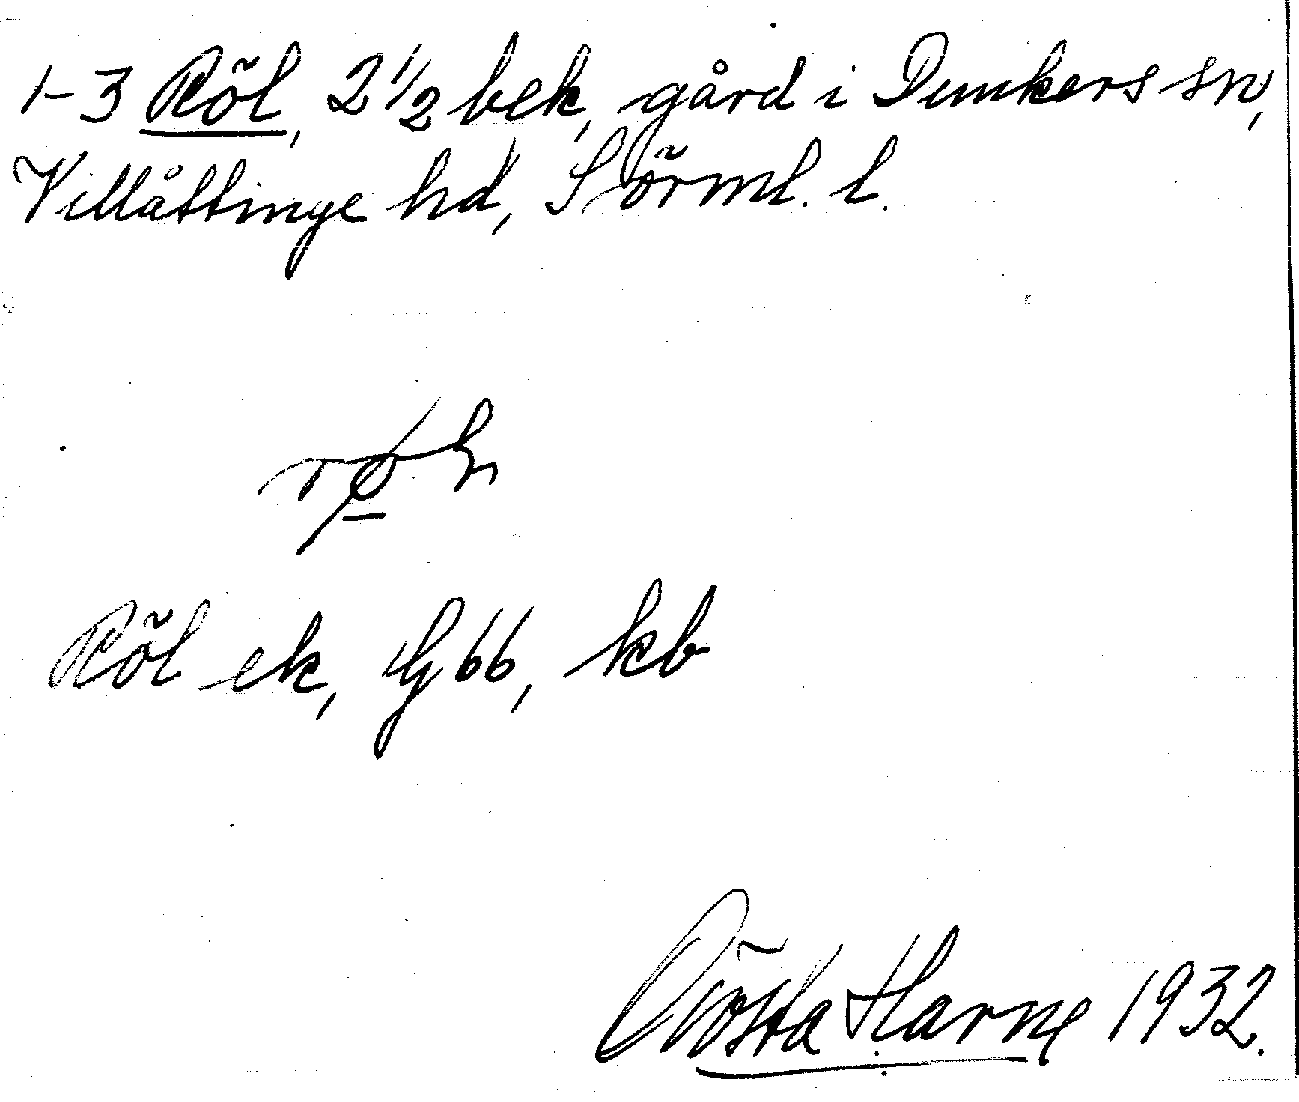 1-3 Röl, 2 1/2 bek, gård i Dunkers sn,
Villåttinge hd, Sörml. l.
Röl ek, Gg 66, kb
Gösta Harne 1932.